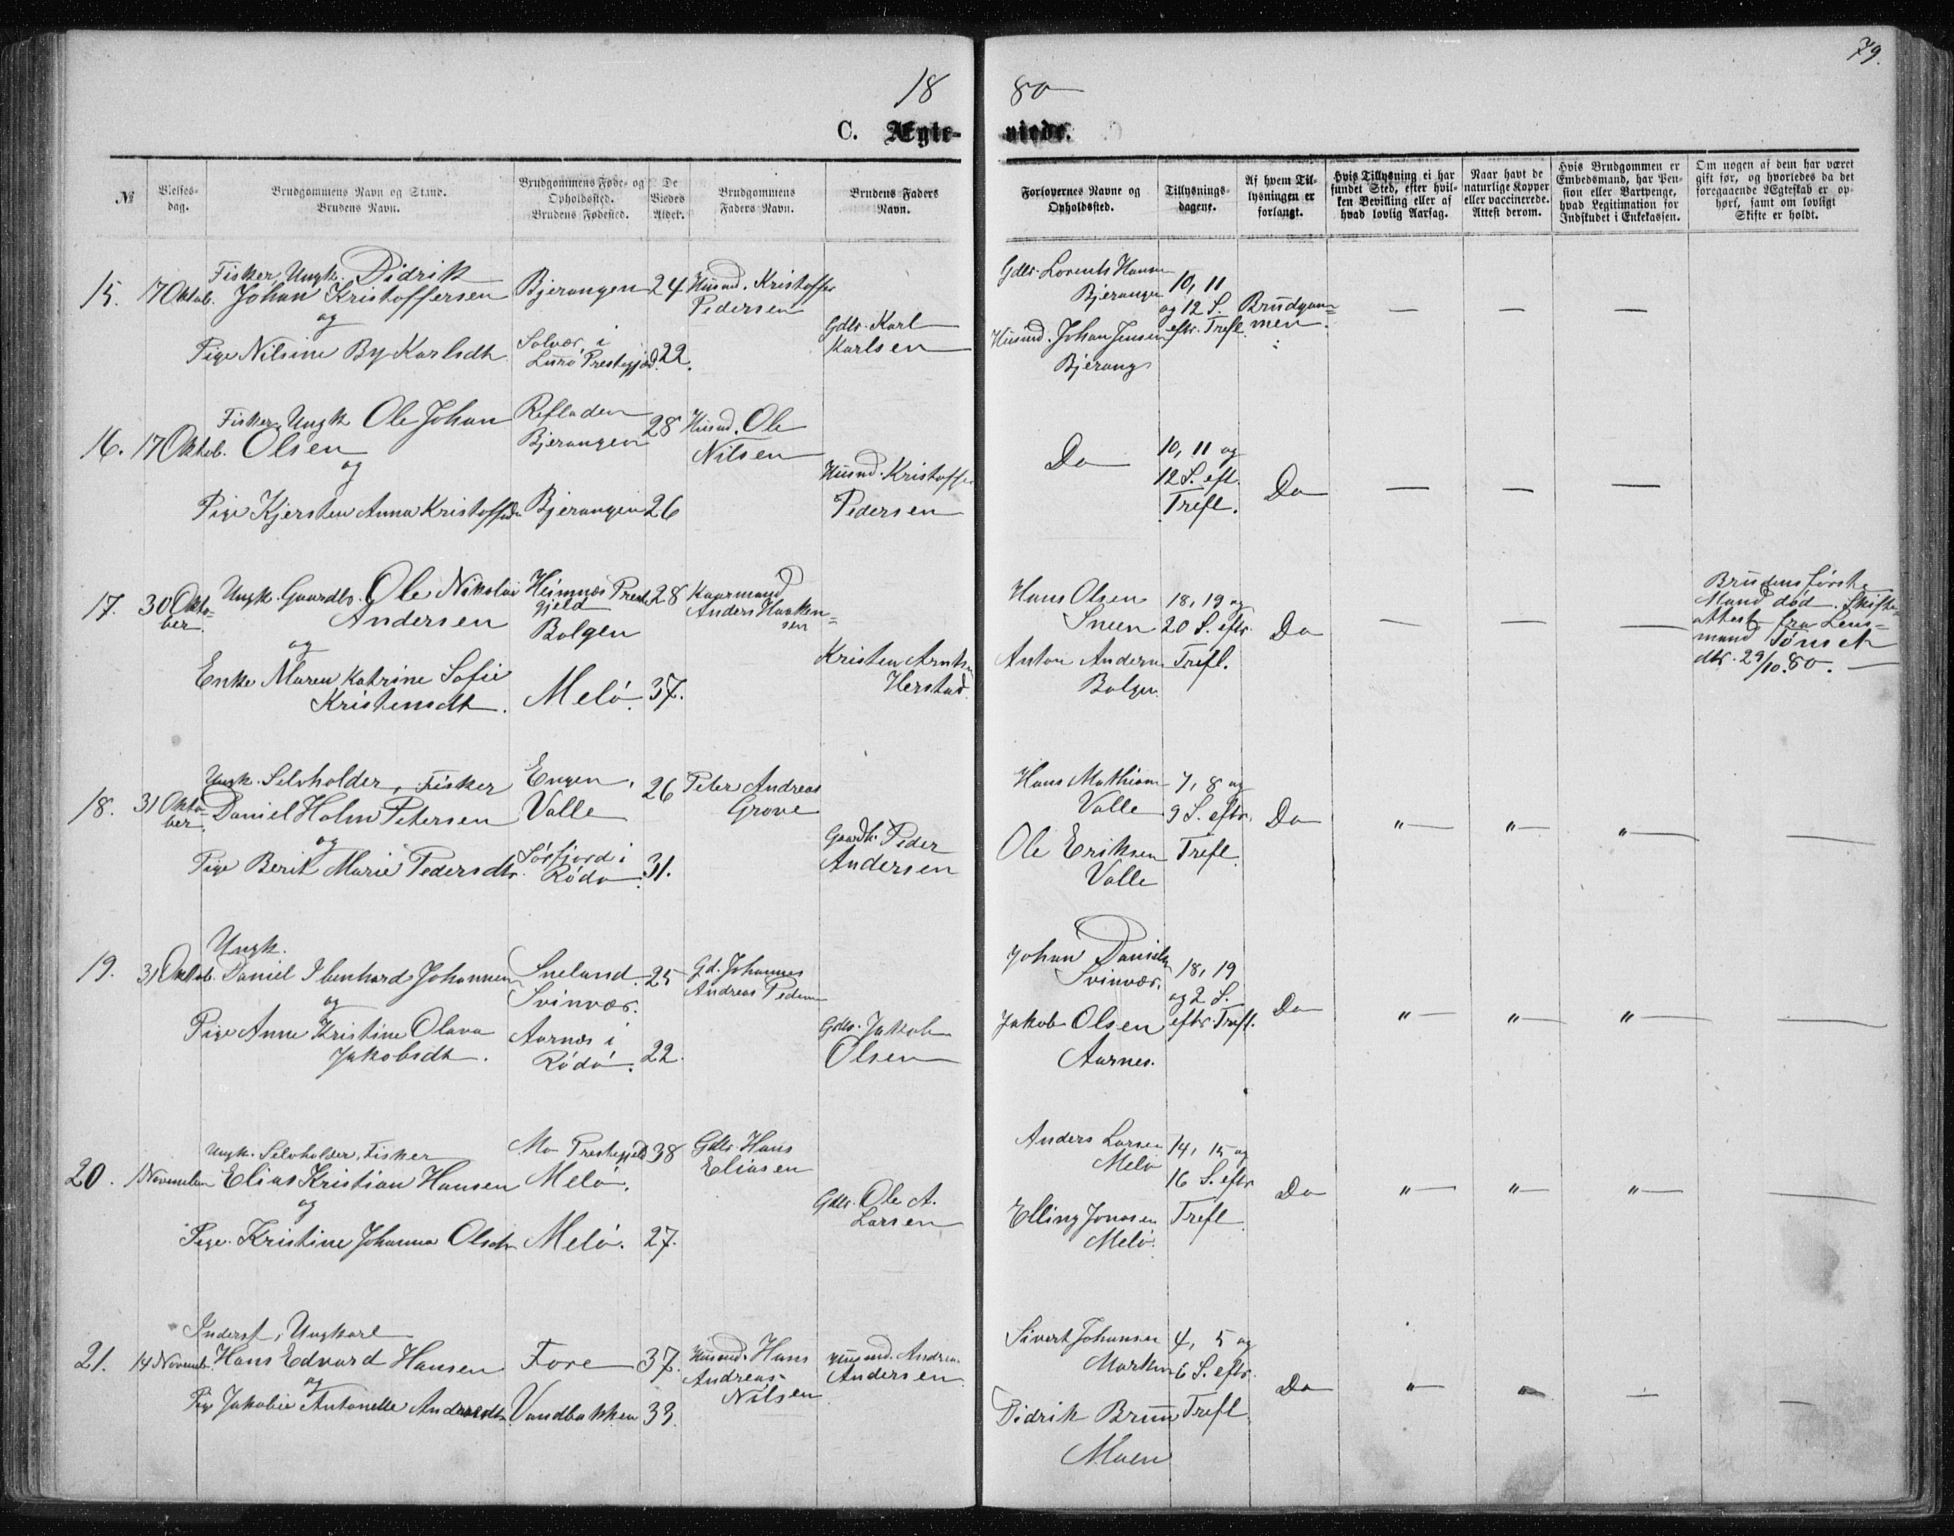 79.
18 80
C. Ægteviede.
№
Vielses-
dag.
Brudgommens Navn og Stand.
Brudens Navn.
Brudgommens Føde- og
Opholdssted.
Brudens Fødested.
De
Viedes
Alder.
Brudgommens
Faders Navn.
Brudens Faders
Navn.
Forlovernes Navne og
Opholdssted.
Tillysnings-
dagene.
Af hvem Til-
lysningen er
forlangt.
Hvis Tillysning ei har
fundet Sted, efter hvil-
ken Bevilling eller af
hvad lovlig Aarsag.
Naar havt de
naturlige Kopper
eller vaccinerede.
Attest derom.
Hvis Brudgommen er
Embedsmand, har Pen-
sion eller Vartpenge,
hvad Legitimation for
Indskudet i Enkekassen.
Om nogen af dem har været
gift før, og hvorledes da det
foregaaende Ægteskab er op-
hørt, samt om lovligt
Skifte er holdt.
15. 17 Oktob.
Fisker, Ungk. Didrik
Johan Kristoffersen
og
Pige Nilsine By Karlsdt
Bjerangen 24
Solvær i
Lurø Prestegjeld. 22.
Husmd. Kristoffer
Pedersen
Gdbr. Karl
Karlsen
Gdbr. Lorents Hansen
Bjerangen
Husmd. Johan Jensen
Bjerang
10, 11
og 12 S.
eftr. Trefl.
Brudgom-
men.
— — —
16. 17 Oktob.
Fisker, Ungk Ole Johan
Olsen
og
Pige Kjersten Anna Kristoffdt
Refladen
Bjerangen 28
Bjerangen 26
Husmd. Ole
Nilsen
Husmd. Kristoffer
Pedersen
Do
10, 11 og
12 S. eft.
Trefl.
Do — — —
17. 30 Okto-
ber.
Ungk. Gaardbr. Ole Nikolai
Andersen
og
Enke Maren Katrine Sofie
Kristensdt.
Hemnæs Preste
gjeld
Bolgen 28
Melö. 37.
Kaarmand
Anders Haaken-
sen
Kristen Arntsen
Herstad.
Hans Olsen
Sneen
Anton Andersen
Bolgen.
18, 19 og
20 S. eftr.
Trefl.
Do — — —
Brudens første
Mand død. Skifte-
attest fra Lens-
mand Tönset
dtr. 29/10. 80. —
18. 31 Okto-
ber.
Ungk. Selvholder, Fisker
Daniel Holm Petersen
og
Pige Berit Marie Pedersdtr.
Engen,
Valle 26
Sörfjord i
Rödö 31.
Peter Andreas
Grove
Gaardbr. Peder
Andersen
Hans Mathisen
Valle
Ole Eriksen
Valle
7, 8 og
9 S. eftr.
Trefl.
Do " — " — " — —
19. 31 Oktob.
Ungk.
Daniel Ibenhard Johannesen
og
Pige Anne Kristine Olava
Jakobsdt.
Sneland.
Svinvær. 25
Aarnes i
Rödö. 22.
Gd. Johannes
Andreas Pedersen
Gdbr. Jakob
Olsen
Johan Danielsen
Svinvær.
Jakob Olsen
Aarnes.
18, 19
og 2 S.
eftr. Trefl.
Do " — " — " — —
20. 1 November
Ungk. Selvholder, Fisker
Elias Kristian Hansen
og
Pige. Kristine Johanna Olsdtr
Mo Prestegjeld 38
Melö.
Melö. 27.
Gdbr. Hans
Eliasen
Gdbr. Ole A.
Larsen
Anders Larsen
Melö
Elling Jonasen
Melö.
14, 15 og
16 S. eftr
Trefl
Do " — " — " — —
21. 14 Novembr.
Inderst, Ungkarl
Hans Edvard Hansen
og
Pige Jakobie Antonette Andreasdtr
Fore 37.
Vandbakken 33.
Husmd. Hans
Andreas
Nilsen
Husmd. Andreas
Andersen
Sivert Johansen
Marken
Didrik Bruun
Moen
4, 5 og
6 S. eftr.
Trefl.
Do " " — —